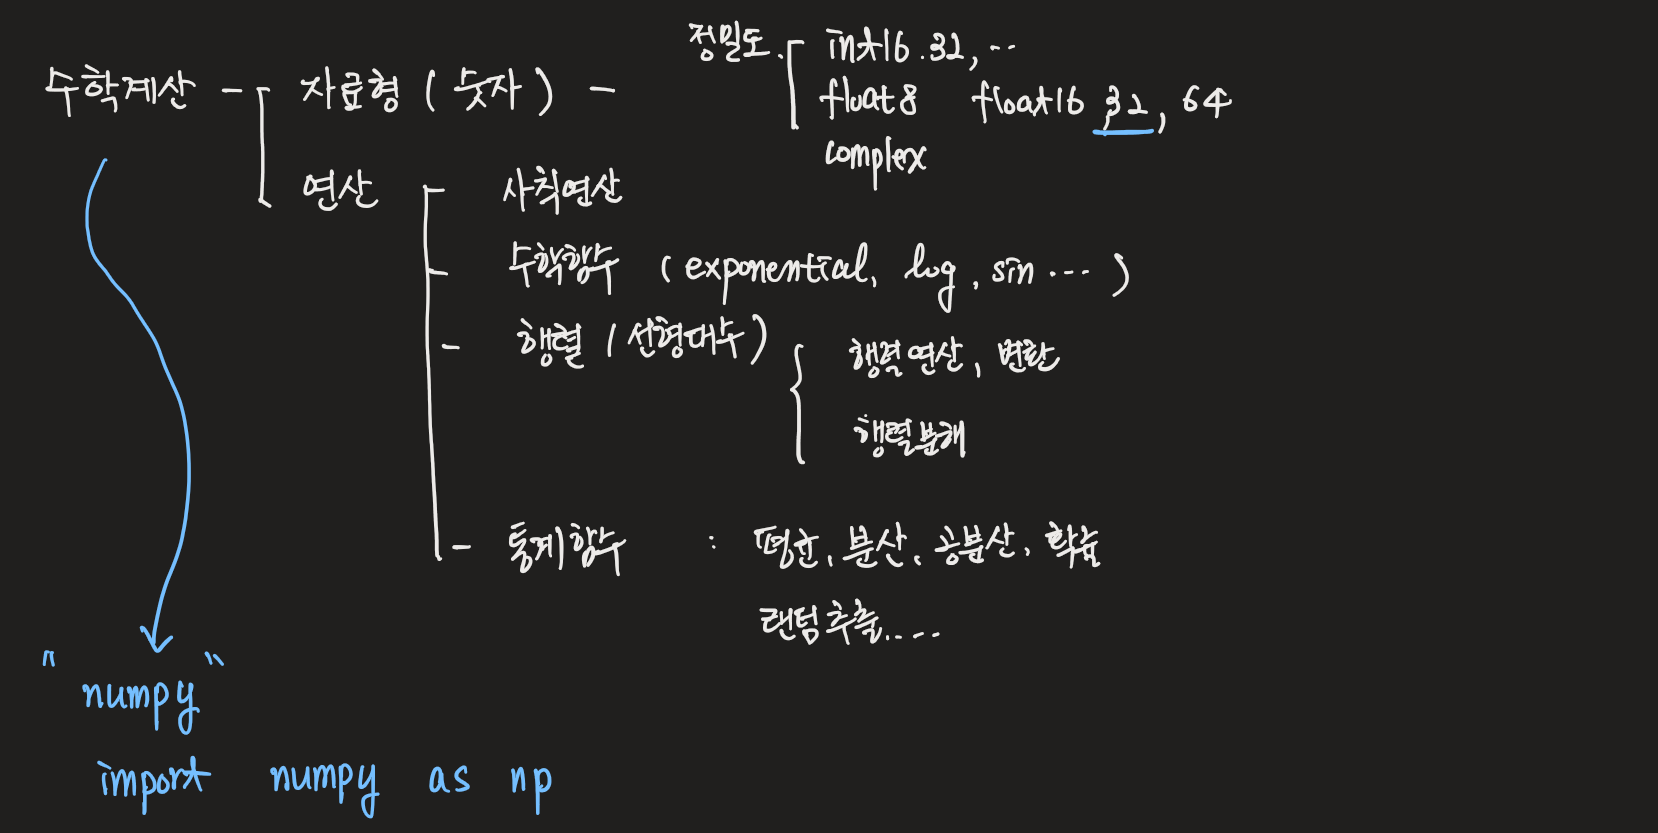 정밀도. int16.32, ...
수학계산 - 자료형 (숫자) - float8 float16, 32, 64
complex
연산 - 사칙연산
- 수학함수 (exponential, log, sin ... )
- 행렬 (선형대수) 행렬연산, 변환
행렬분해
- 통계함수 : 평균, 분산, 공분산, 확률
랜덤추출....
"numpy"
import numpy as np